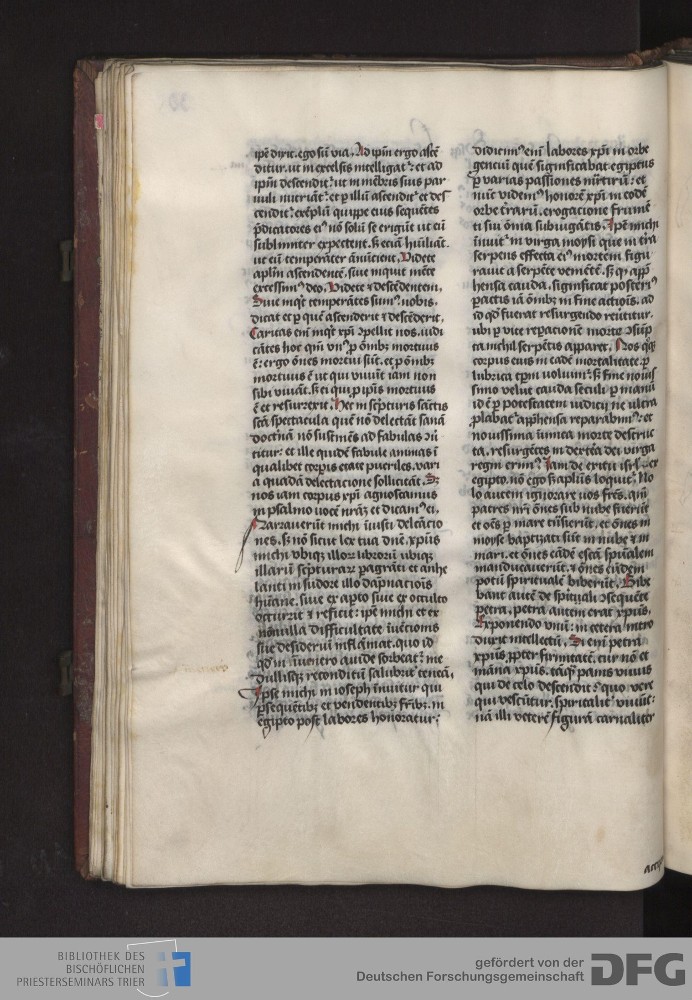 ip̄e dixit. ego sū via. Ad ip̄m ergo ascē
ditur. ut in excelsis intelligat᷑: et ad
ip̄m descendit᷑: ut in mēbris suis par
uuli nutriāt᷑: et ꝑ illū ascendit᷑ et des
cendit᷑. exēplū quippe eius sequētes
p̄dicatores eiꝰ nō solū se erigūt ut eū
sublimiter expectent. sꝫ eciā hūiliāt᷑.
ut eū temperāter ānūcient. Videte
apl̄m ascendentē. siue inquit mēte
excessimꝰ deo. Videte ⁊ descēdentem.
Siue inqͥt temperātes sumꝰ nobis.
dicat et ꝑ quē ascenderit ⁊ descēderit.
Caritas em̄ inqͥt xp̄i ꝯpellit nos. iudi
cātes hoc qm̄ vnꝰ ꝓ ōmibꝫ mortuus
ē: ergo ōnes mortui sūt. et ꝓ ōmibꝫ
mortuus ē ut qui viuūt iam non
sibi viuāt. sꝫ ei qui ꝓ ip̄is mortuus
ē et resurrexit. Hec in sc̄pturis sāctis
sc̄ā spectacula quē nō delectāt sanā
doctͥnā nō sustinēs ad fabulas ꝯū
titur: et ille quidē fabule animas ī
qualibet corꝑis etate pueriles. vari
a quadā delectacione sollicitāt. Sꝫ
nos iam corpus xp̄i agnoscamus
in psalmo vocē nr̄aꝫ et dicamꝰ ei.
Narrauerūt michi iīusti delc̄acio
nes. sꝫ nō sicut lex tua dn̄e. xp̄us
michi vbiqꝫ illoꝝ libroꝝ ubiqꝫ
illarū sc̄pturaꝝ pagrāti et anhe
lanti in sudore illo dāpnationis
hūane. siue ex apto siue ex occulto
occurrit ⁊ reficit: ip̄e michi et ex
nōnulla difficultate īuēcionis
sue desideriū inflāmat. quo id
qd̄ in
auide sorbeat᷑: me
dullisqꝫ reconditū salubrit᷑ teneā.
Ip̄se michi in ioseph īnuitur qui
ꝑsequētibꝫ et vendentibꝫ fr̄ibꝫ. in
egipto post labores honoratur:
didicimꝰ em̄ labores xp̄i in orbe
genciū quē significabat egiptus
ꝑ varias passiones mr̄tirū: et
nūc videmꝰ honorē xp̄i in eodē
orbe trarū. erogacione frumē
ti sui ōmīa subiugātis. Ip̄e michi
īnuit᷑ in virga moysi que in tr̄a
serpens effecta eiꝰ mortem figu
rauit a serpēte veniētē. sꝫ qͥ appͤ
hensa cauda. significat posterͥꝰ
ꝑactis iā ōmibꝫ in fine actiōis. ad
id qd̄ fuerat resurgendo reūtitur.
ubi ꝑ vite reꝑacionē morte ꝯsūp
ta nichil serpētis apparet. Nos qͦqꝫ
corpus eius in eadē mortalitate. ꝑ
lubrica tp̄m voluim᷑: sꝫ fine nouis
simo velut cauda seculi ꝑ manū
id ē ꝑ potestatem iudicij ne ultra
ꝓlabat᷑ apͥhensa reparabim᷑: et
nouissima iīmica morte destruc
ta. resurgētes in dextēa dei virga
regni erimꝰ: Iam de exitu isrl̄ ex
egipto. nō ego sꝫ apl̄us loquit᷑: No
lo autem ignorare vos fr̄es. qm̄
patres nr̄i ōnes sub nube fuerūt
et oēs ꝑ mare tͣsierūt. et ōnes in
moyse baptizati sūt in nube ⁊ in
mari. et ōnes eādē escā spūalem
manducauerūt. ⁊ ōnes eūdem
potū spiritualē biberūt. Bibe
bant autē de spūali ꝯsequēte
petra. petra autem erat xp̄us.
Exponendo vnū: in cetera īntro
duxit intellectū. Si em̄ petra
xp̄us ꝓpter firmitatē. cur nō et
māna xp̄us. tāqͣ panis viuus
qui de celo descendit: quo vere
qui vescūtur. spiritalit᷑ viuūt:
nā illi veterē figurā carnaliter
BIBLIOTHEK DES
BISCHÖFLICHEN
PRIESTERSEMINARS TRIER
gefördert von der
Deutschen Forschungsgemeinschaft
DFG